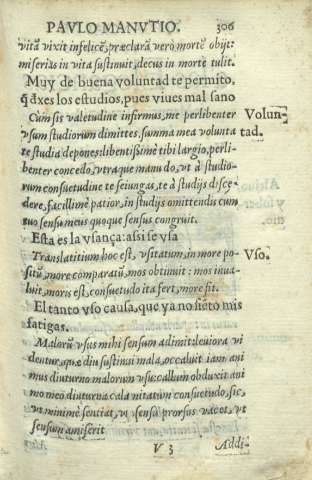 PAVLO MANVTIO. 306
vitã vixit infelicẽ, præclarã vero mortẽ obijt:
miserias in vita sustinuit, decus in morte tulit.
Muy de buena voluntad te permito,
q̃ dxes los estudios, pues viues mal sano
Cum sis valetudine infirmus, me perlibenter
vsum studiorum dimittes, summa mea volunta
te studia depones: libentissimè tibi largio, perli-
benter concedo, vtraque manu do, vt à studio-
rum consuetudine te seiungas, te à studijs disce-
dere, facillimè patior, in studijs omittendis cum
tuo sensu meus quoque sensus congruit.
Volun-
tad.
Esta es la vsança: assi se vsa
Translatitium hoc est, vsitatum, in more po-
situm, more comparatũ, mos obtinuit: mos inua-
luit, moris est, consuetudo ita fert, more fit.
Vso.
El tanto vso causa, que ya no siẽto mis
fatigas.
Malorũ vsus mihi sensum adimit: leuiora vi
dentur, quæ diu sustinui mala, occaluit iam ani
mus diuturno malorum vsu: callum obduxit ani
mo meo diuturna calamitatum consuetudo, sic,
vt minimè sentiat, vt sensu prorsus vacet, vt
sensum amiserit
V 3 Addi-